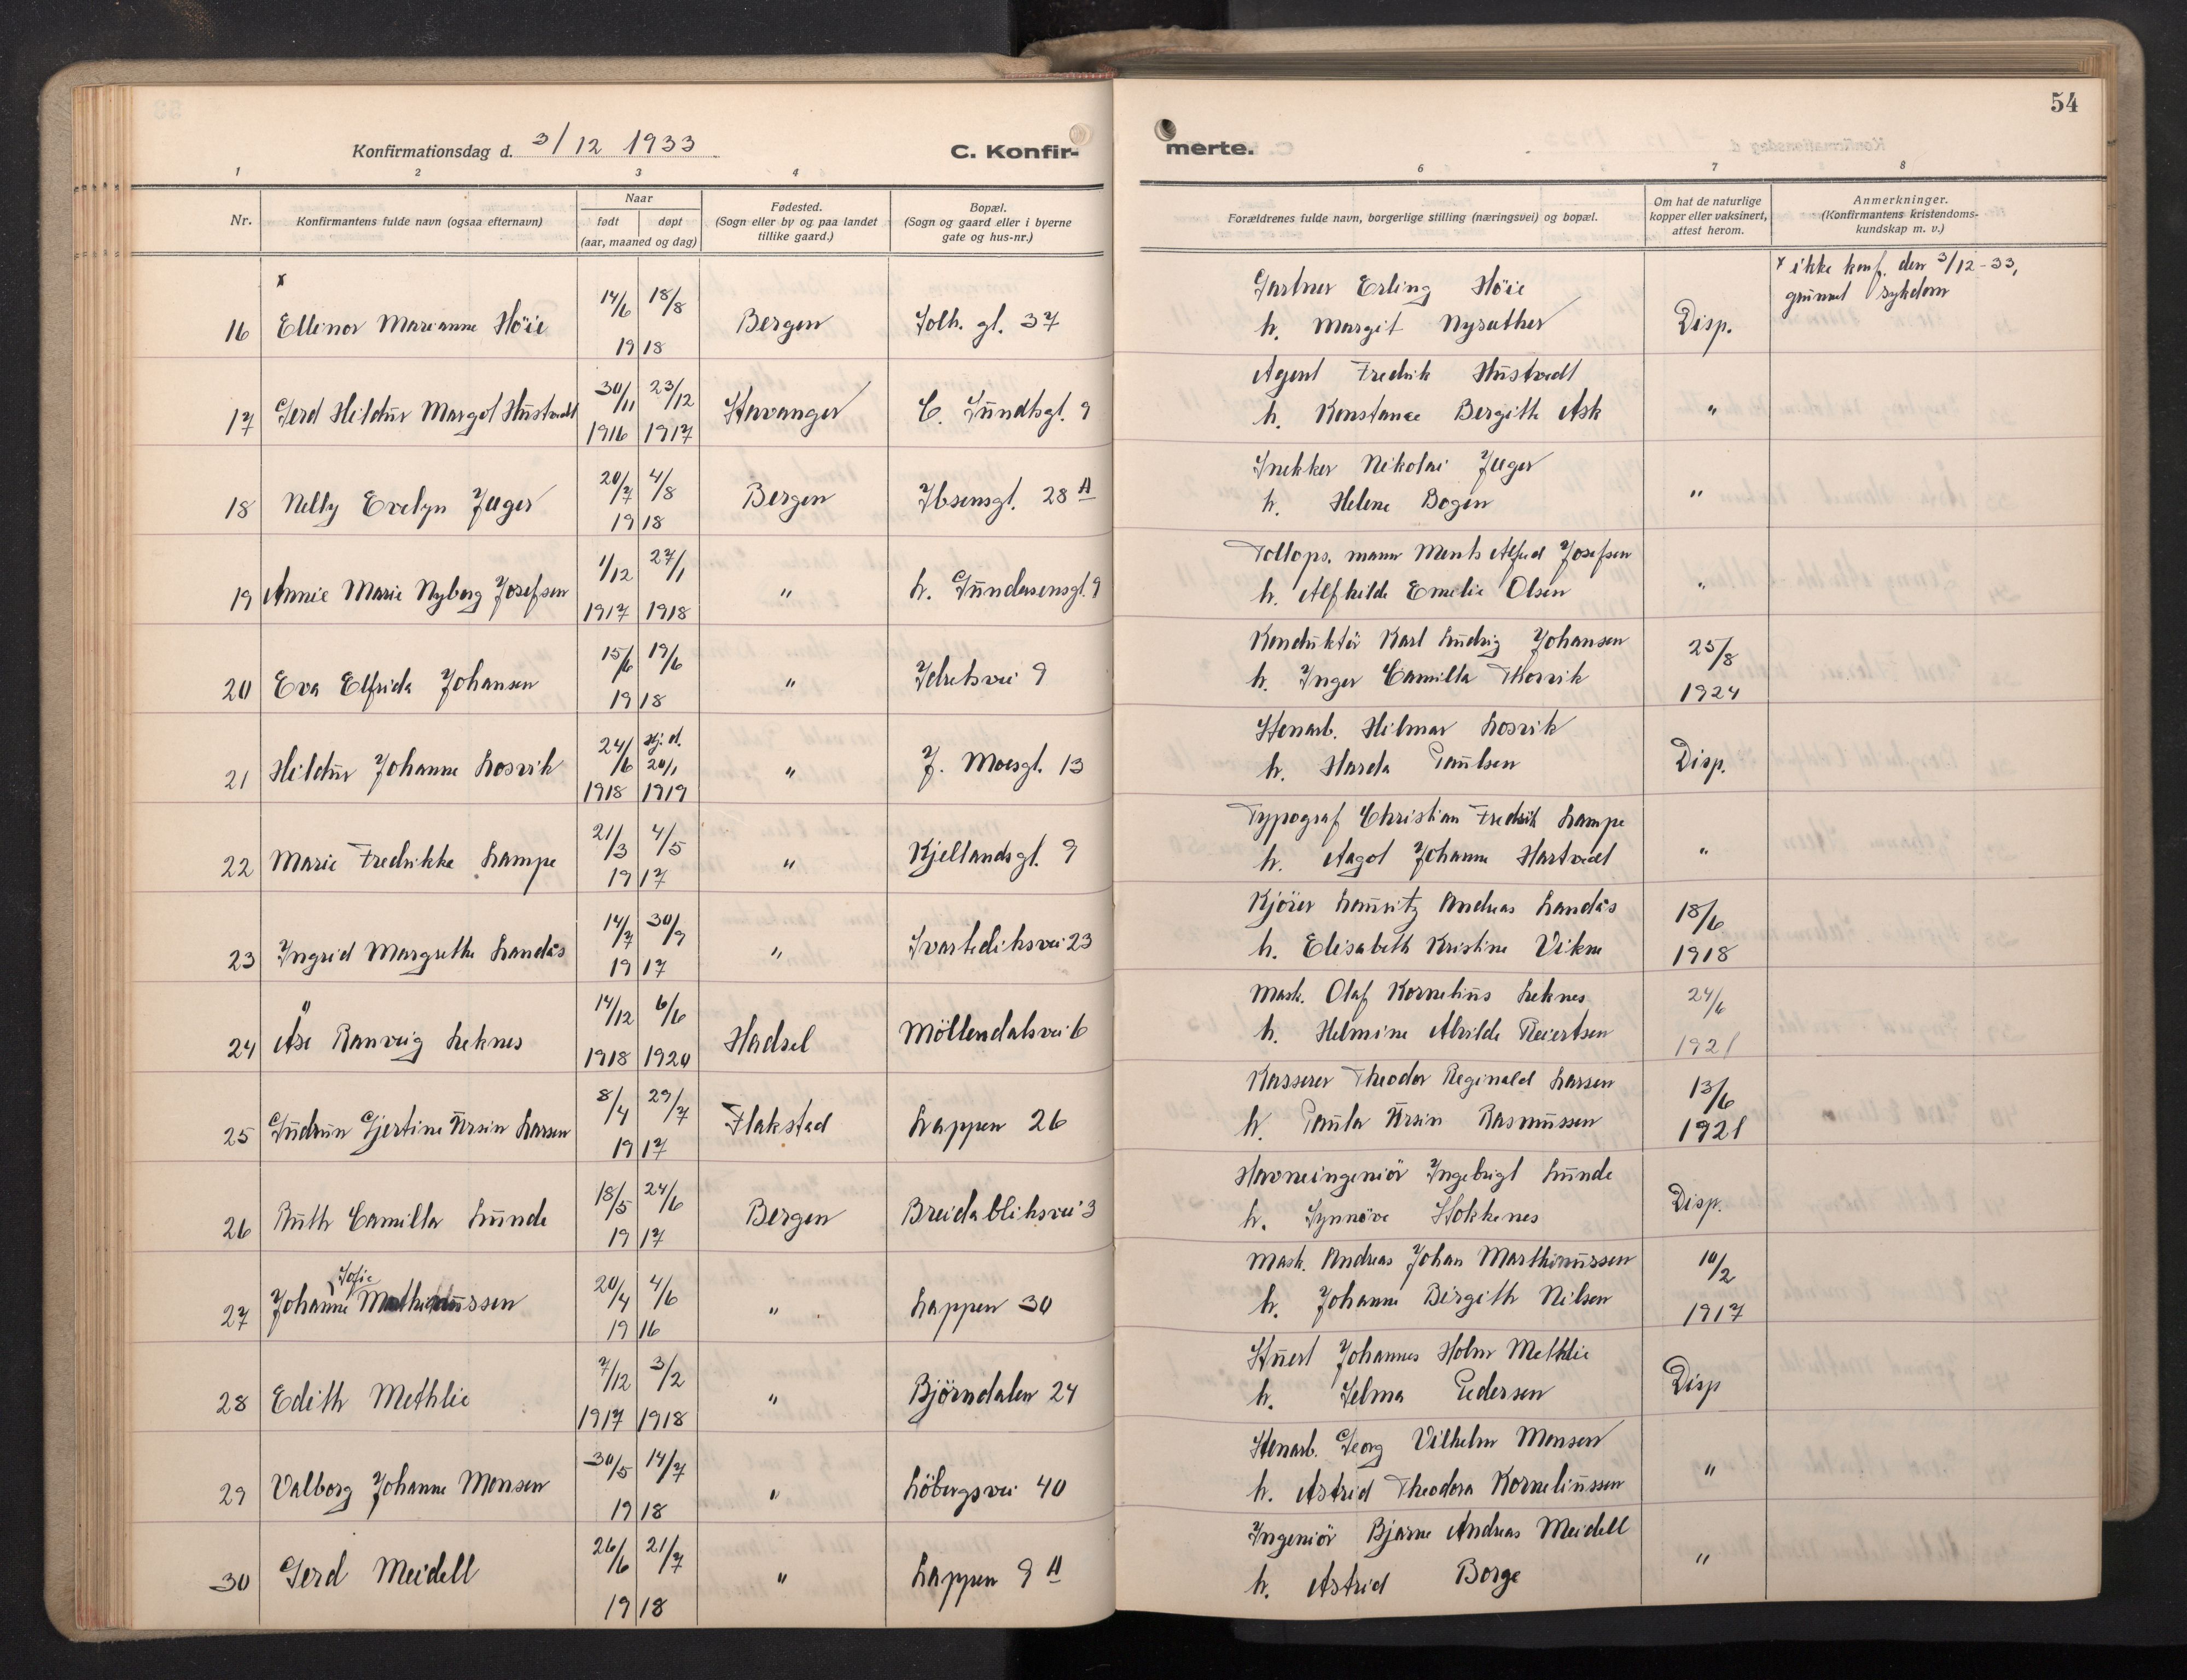 54
Konfirmationsdag d. 3/12 1933
C. Konfir-
merte.
1 2 3 4 6 7 8
Nr.
Konfirmantens fulde navn (ogsaa efternavn)
Naar
født døpt
(aar, maaned og dag)
Fødested.
(Sogn eller by og paa landet
tillike gaard.)
Bopæl.
(Sogn og gaard eller i byerne
gate og hus-nr.)
Forældrenes fulde navn, borgerlige stilling (næringsvei) og bopæl.
Om hat de naturlige
kopper eller vaksinert,
attest herom.
Anmerkninger.
(Konfirmantens kristendoms-
kundskap m. v.)
x
16 Ellinor Marianne Höie 14/6 18/8 1918 Bergen Solh. gt. 37
Gartner Erling Höie
h. Margit Nysæther
Disp.
x ikke konf. den 3/12-33,
grunnet sykdom
17 Gerd Hildur Margot Hustvedt 30/11 1916 23/12 1917 Stavanger C. Sundtsgt. 9
Agent Fredrik Hustvedt
h. Konstance Bergith Ask
"
18 Nelly Evelyn Jæger 20/7 4/8 1918 Bergen Ibsensgt. 28 A
Snekker Nikolai Jæger
h. Helene Bogen
"
19 Annie Marie Nyborg Josefsen 1/12 1917 27/1 1918 " h. Gundersensgt. 9
Tollops. mann Ments Alfred Josefsen
h. Alfhilde Emelie Olsen
"
20 Eva Elfrida Johansen 15/6 19/6 1918 " Idretsvei 9
Konduktör Karl Ludvig Johansen
h. Inger Camilla Thorvik
25/8
1924
21 Hildur Johanne Losvik 24/6 1918 Hj. d. 20/1 1919 " J. Moesgt. 13
Stenarb. Hilmar Losvik
h. Harda Paulsen
Disp.
22 Marie Fredrikke Lampe 21/3 4/5 1917 " Kjellandsgt. 9
Typograf Christian Fredrik Lampe
h. Aagot Johanne Hartvedt
"
23 Ingrid Margrethe Landås 14/7 30/9 1917 " Svartediksvei 23
Kjörer Lauritz Andreas Landås
h. Elisabeth Kristine Vikne
18/6
1918
24 Åse Ranveig Leknes 14/12 1918 6/6 1920 Hadsel Möllendalsvei 6
Mask. Olaf Kornelius Leknes
h. Helmine Alvilde Reiertsen
24/6
1921
25 Gudrun Gjertine Ursin Larsen 8/4 29/7 1917 Flakstad Lappen 26
Kasserer Theodor Reginald Larsen
h. Paula Ursin Rasmussen
13/6
1921
26 Ruth Camilla Lunde 18/5 24/6 1917 Bergen Breidabliksvei 3
Havneingeniör Ingebrigt Lunde
h. Synnöve Stokkenes
Disp.
27 Johanne Sofie Mathinussen 20/4 4/6 1916 " Lappen 30
Mask. Andreas Johan Marthinussen
h. Johanne Birgith Nilsen
10/2
1917
28 Edith Methlie 7/12 1917 3/2 1918 " Björndalen 24
Stuert Johannes Holm Methlie
h. Selma Pedersen
Disp
29 Valborg Johanne Monsen 30/5 14/7 1918 " Löbergsvei 40
Stenarb. Georg Vilhelm Monsen
h. Astrid Theodora Korneliussen
"
30 Gerd Meidell 26/6 21/7 1918 " Lappen 9 A
Ingeniör Bjarne Andreas Meidell
h. Astrid Borge
"